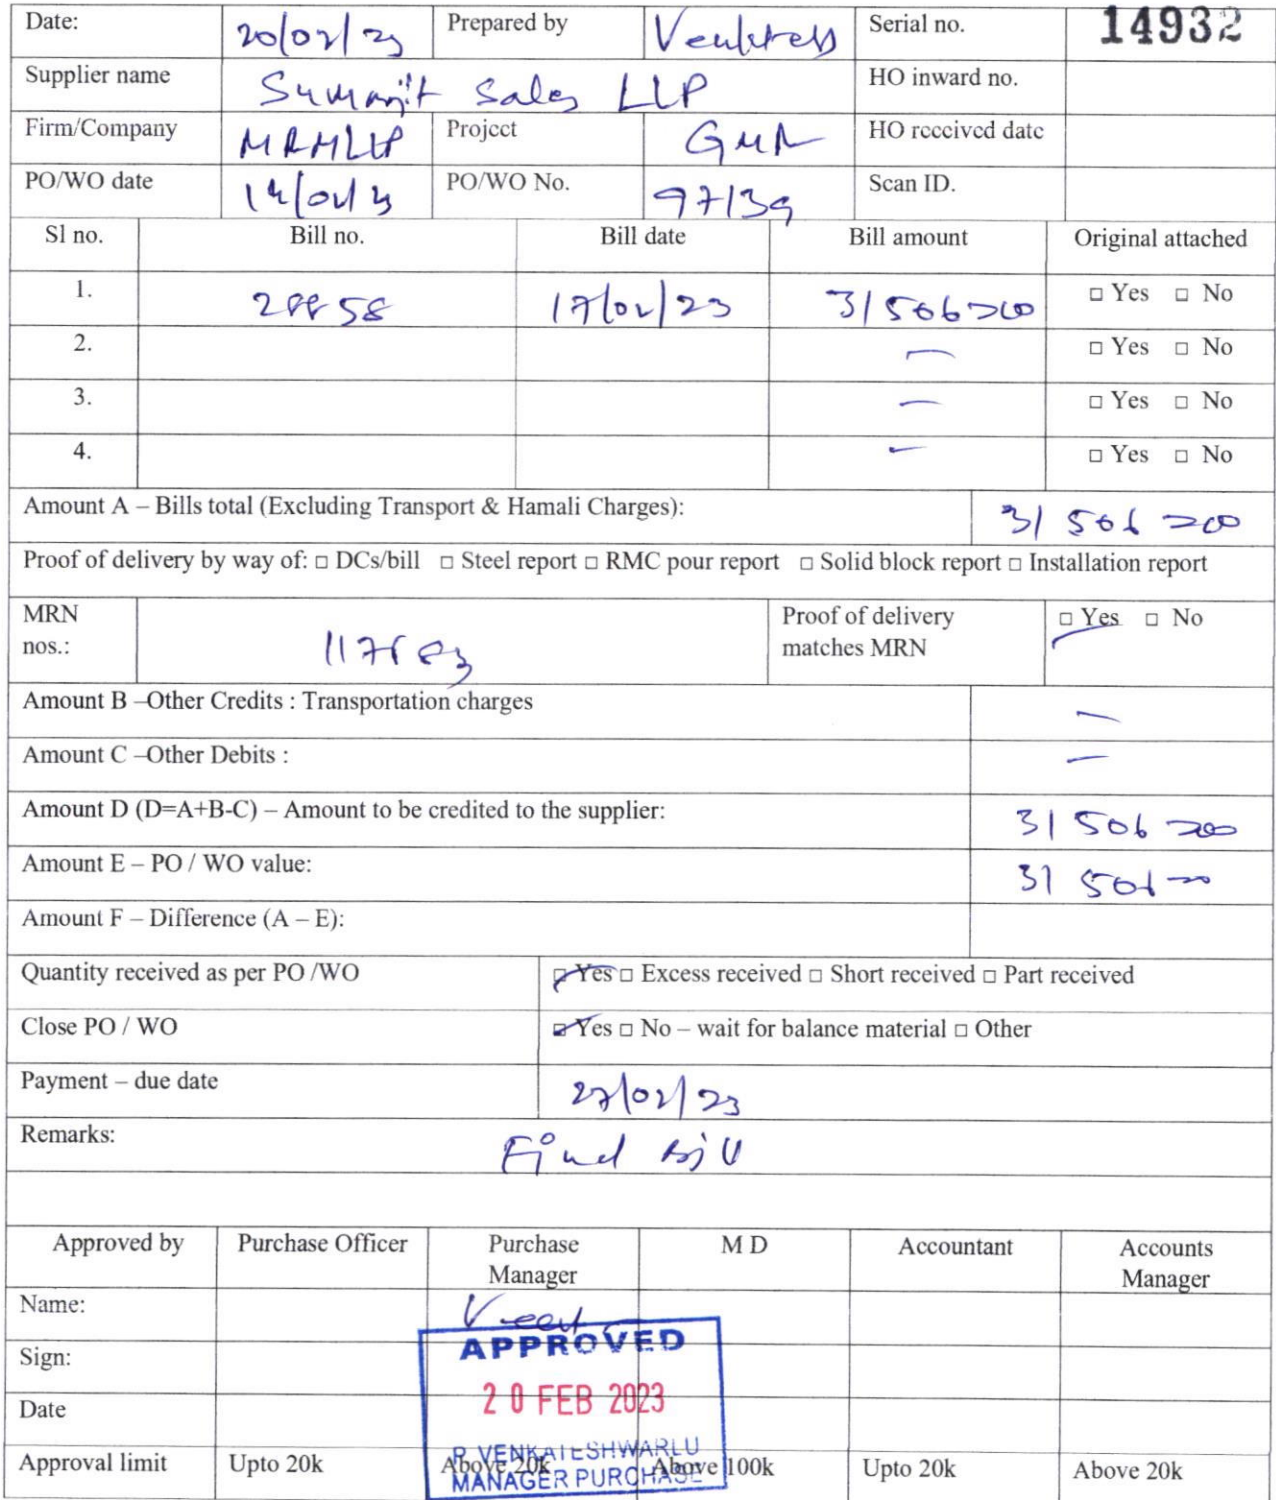 Date: 20/02/23 Prepared by Venkatesh Serial no. 14932
Supplier name Summit Sales LLP HO inward no.
Firm/Company MRMLLP Project GMR HO received date
PO/WO date 14/02/23 PO/WO No. 97139 Scan ID.
Sl no. Bill no. Bill date Bill amount Original attached
1. 28858 17/02/23 31506 □ Yes □ No
2. — □ Yes □ No
3. — □ Yes □ No
4. — □ Yes □ No
Amount A – Bills total (Excluding Transport & Hamali Charges): 31506
Proof of delivery by way of: □ DCs/bill □ Steel report □ RMC pour report □ Solid block report □ Installation report
MRN nos.: Proof of delivery matches MRN □ Yes □ No
Amount B –Other Credits : Transportation charges —
Amount C –Other Debits : —
Amount D (D=A+B-C) – Amount to be credited to the supplier: 31506
Amount E – PO / WO value: 31506
Amount F – Difference (A – E):
Quantity received as per PO /WO ☑ Yes □ Excess received □ Short received □ Part received
Close PO / WO ☑ Yes □ No – wait for balance material □ Other
Payment – due date 27/02/23
Remarks: Final Bill
Approved by Purchase Officer Purchase Manager M D Accountant Accounts Manager
Name:
APPROVED
Sign:
20 FEB 2023
Date
P. VENKATESHWARLU
MANAGER PURCHASE
Approval limit Upto 20k Above 20k Above 100k Upto 20k Above 20k